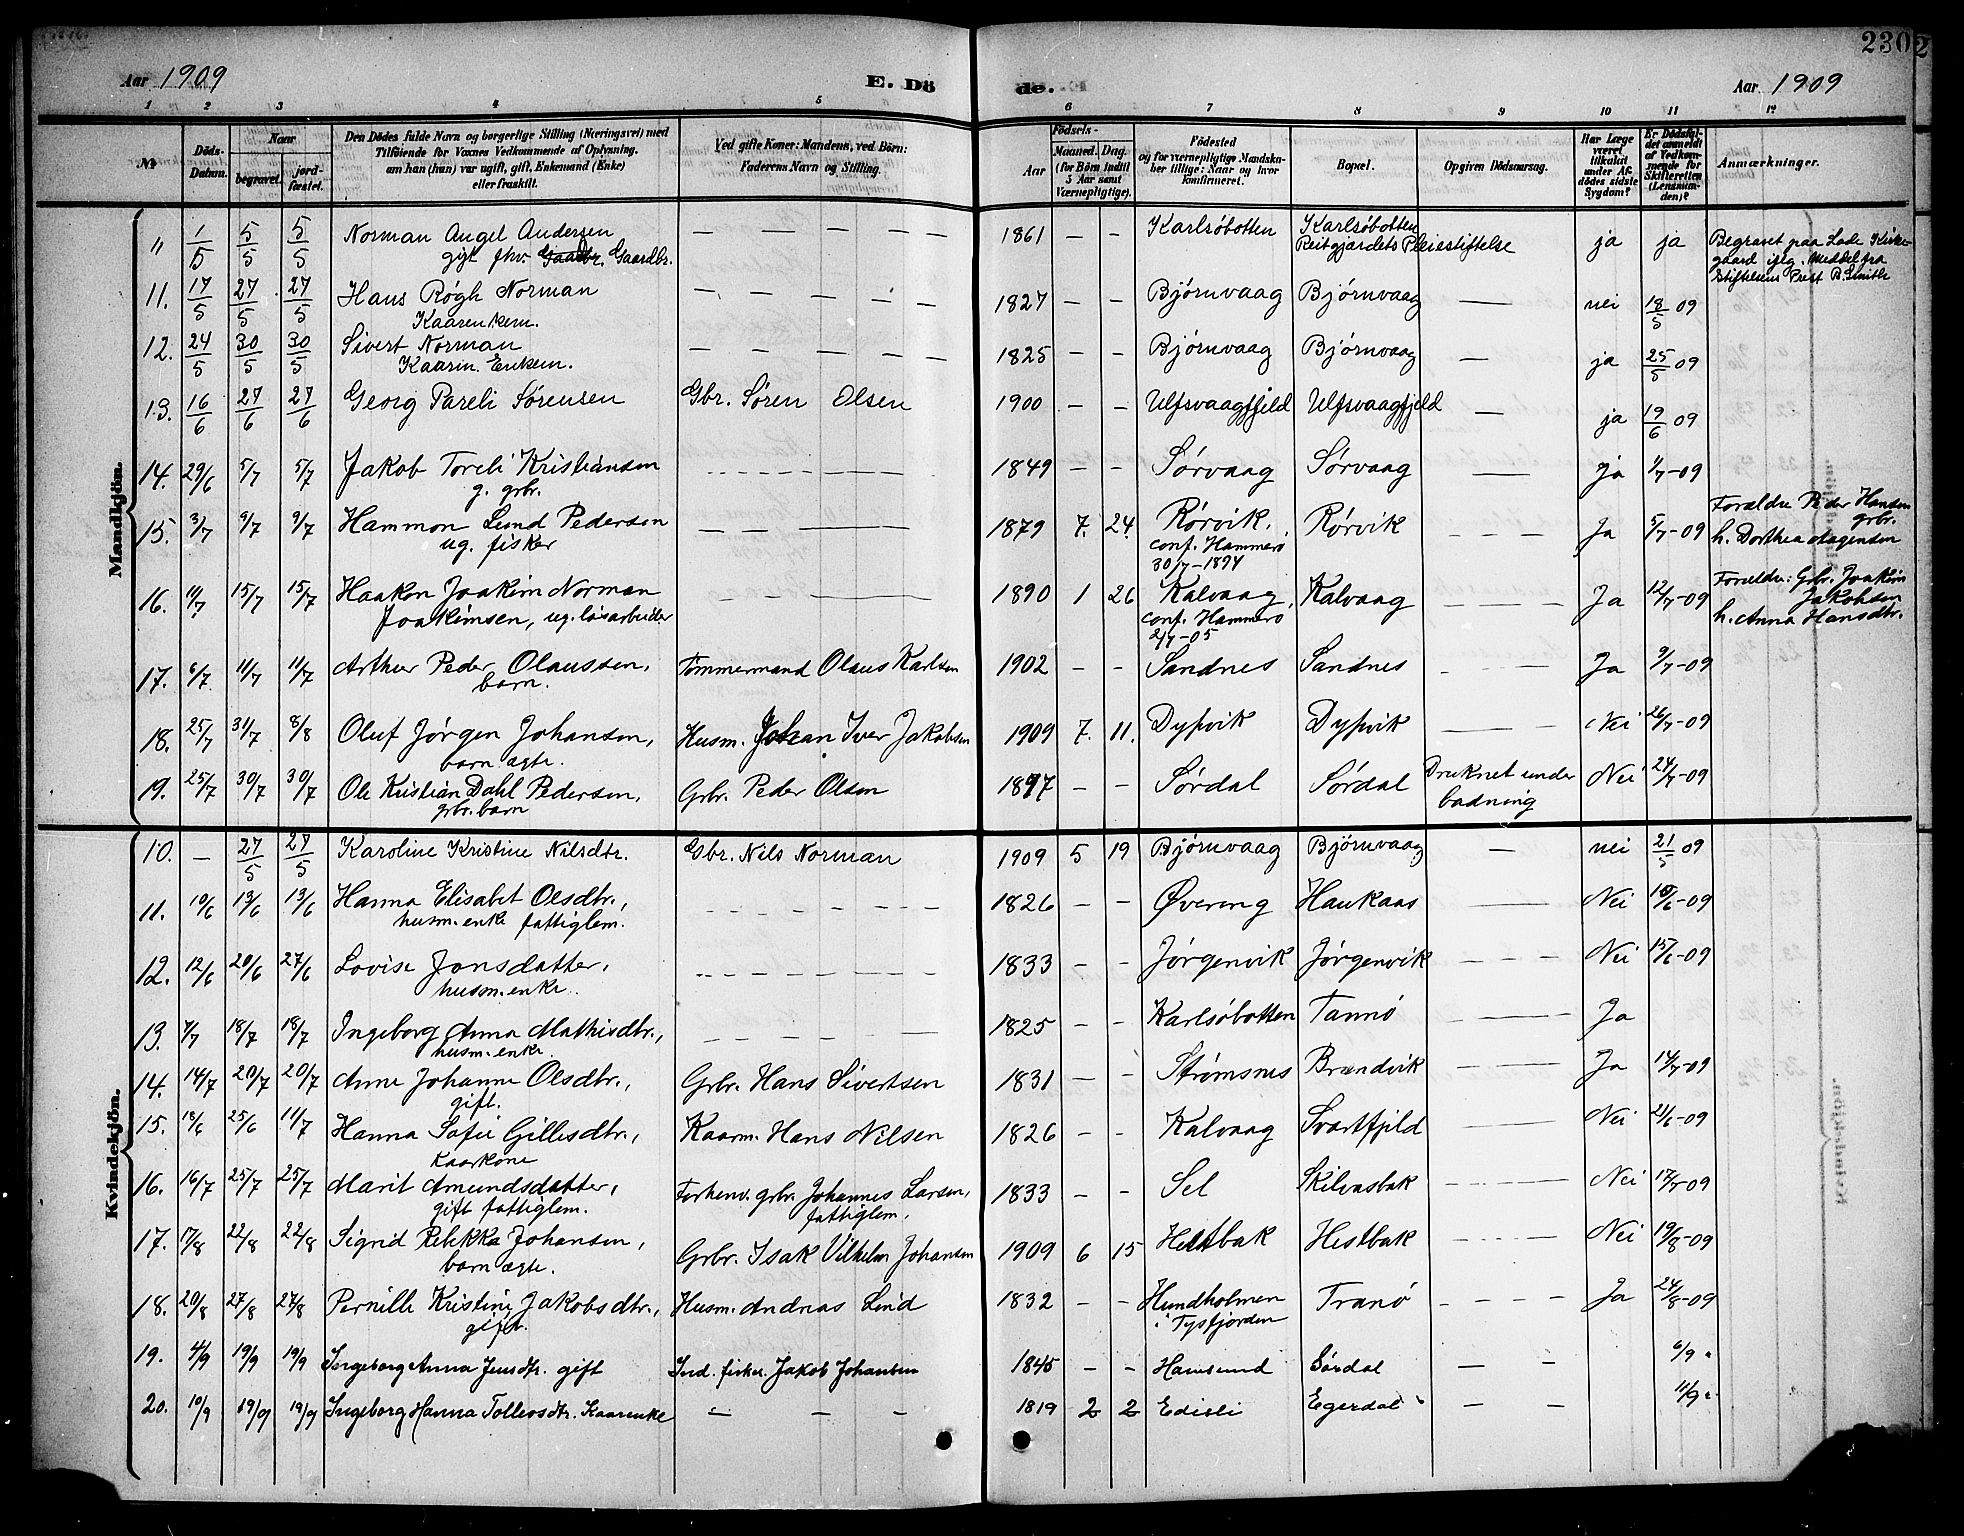 230
Aar 1909 E. Dö de. Aar 1909
1 2 3 4 5 6 7 8 9 10 11 12
No
Döds-Datum.
Naar
begravet.
jord-fæstet.
Den Dödes fulde Navn og borgerlige Stilling (Næringsvei) med
Tilföiende for Voxnes Vedkommende af Oplysning,
om han (hun) var ugift, gift, Enkemand (Enke)
eller fraskilt.
Ved gifte Koner: Mandens, ved Börn:
Faderens Navn og Stilling.
Födsels-
Aar
Maaned. Dag.
(for Börn indtil
5 Aar samt
Værnepligtige).
Födested
og for værnepligtige Mandska-
ber tillige: Naar og hvor
konfirmeret.
Bopæl.
Opgiven Dödsaarsag.
Har Læge
været
tilkaldt
under Af-
dödes sidste
Sygdom?
Er Dödsfal-
det anmeldt
af Vedkom-
mende for
Skifteretten
(Lensman-
den)?
Anmærkninger.
Mandkjön.
" 1/5 5/5 5/5 Norman Angel Andersen — — — — — 1861 — — Karlsöbotten Karlsöbotten ja ja Begravet paa Lade Kirke-
gift fhv. Gaardbr. Gaardbr. Reitgjerdets Pleiestiftelse gaard iflg. Meddel fra
Stiftelsens Prest B. Smith
11. 17/5 27/5 27/5 Hans Røgh Norman — — — — — 1827 — — Bjørnvaag Bjørnvaag — nei 18/5 09
Kaarenkem.
12. 24/5 30/5 30/5 Sivert Norman — — — — — 1825 — — Bjørnvaag Bjørnvaag — ja 25/5 09
Kaarm. Enkem.
13. 16/6 27/6 27/6 Georg Pareli Sörensen Gbr. Sören Olsen 1900 — — Ulfsvaagfjeld Ulfsvaagfjeld — ja 19/6 09
14. 29/6 5/7 5/7 Jakob Toreli Kristiansen 1849 — — Sørvaag Sørvaag — ja 1/7-09
g. grbr.
15. 3/7 9/7 9/7 Hammon Lund Pedersen — — — 1879 7. 24. Rørvik. Rørvik — — — Ja 5/7-09 Forældre Peder Hansen
ug. fisker conf. Hammerö grbr.
30/7-1894 h. Dorthea Mogensen
16. 10/7 15/7 15/7 Haakon Joakim Norman 1890 1 26 Kalvaag, Kalvaag Ja 12/7-09 Forældre: Grbr. Joakim
Joakimsen, ug. løsarbeider conf. Hammerö Jakobsen
2/7-05 h. Anna Hansdtr.
17. 6/7 11/7 11/7 Arthur Peder Olaussen, Tömmermand Olaus Karlsen 1902 — — Sandnes Sandnes Ja 9/7-09
barn.
18. 25/7 31/7 8/8 Oluf Jörgen Johansen, Husm. Johan Iver Jakobsen 1909 7. 11. Dypvik Dypvik Nei 26/7-09
barn ægte.
19. 25/7 30/7 30/7 Ole Kristian Dahl Pedersen, Grbr. Peder Olsen 1897 — — Sørdal Sørdal Druknet under Nei 27/7-09
grbr. barn badning
Kvindekjön.
10. — 27/5 27/5 Karoline Kristine Nilsdtr. Gbr. Nils Norman 1909 5 19 Bjørnvaag Bjørnvaag — nei 21/5 09
11. 10/6 13/6 13/6 Hanna Elisabet Olsdtr., 1826 — — Øvereng Haukaas — Nei 10/6-09
husm. enke fattiglem.
12. 12/6 20/6 27/6 Lovise Jonsdatter, 1833 — — Jørgenvik Jørgenvik Nei 15/6-09
husm. enke.
13. 7/7 18/7 18/7 Ingeborg Anna Mathisdtr., 1825 — — Karlsöbotten Tannö Ja
husm. enke.
14. 14/7 20/7 20/7 Anne Johanne Olsdtr., Grbr. Hans Sivertsen 1831 — — Strømsnes Brændvik Ja 14/7-09
gift.
15. 18/6 25/6 11/7 Hanna Sofie Gillesdtr., Kaarm. Hans Nilsen 1826 — — Kalvaag Svartfjeld Nei 21/6-09
Kaarkone
16. 16/7 25/7 25/7 Marit Amundsdatter, Forhenv. grbr. Johannes Larsen, 1833 — — Sel Skilvasbak Nei 17/7-09
gift fattiglem. fattiglem,
17. 17/8 22/8 22/8 Sigrid Rebekka Johansen, Grbr. Isak Vilhelm Johansen 1909 6 15 Hestbak Hestbak Nei 19/8-09
barn ægte.
18. 20/8 27/8 27/8 Pernille Kristine Jakobsdtr., Husm. Andreas Lind 1832 — — Hundholmen Tranö Ja 24/8-09
gift. i Tysfjorden
19. 4/9 19/9 19/9 Ingeborg Anna Jensdtr. gift Ind. fisker Jakob Johansen 1845 — — Hamsund Sördal — — 6/9 "
20. 10/9 19/9 19/9 Ingeborg Hanna Tollevsdtr. Kaarenke — — — 1819 2 2 Edisli Egerdal — — 11/9 "